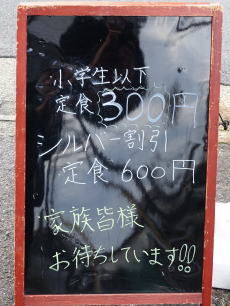 小学生以下
定食300円
シルバー割引
定食600円
家族皆様
お待ちしています!!